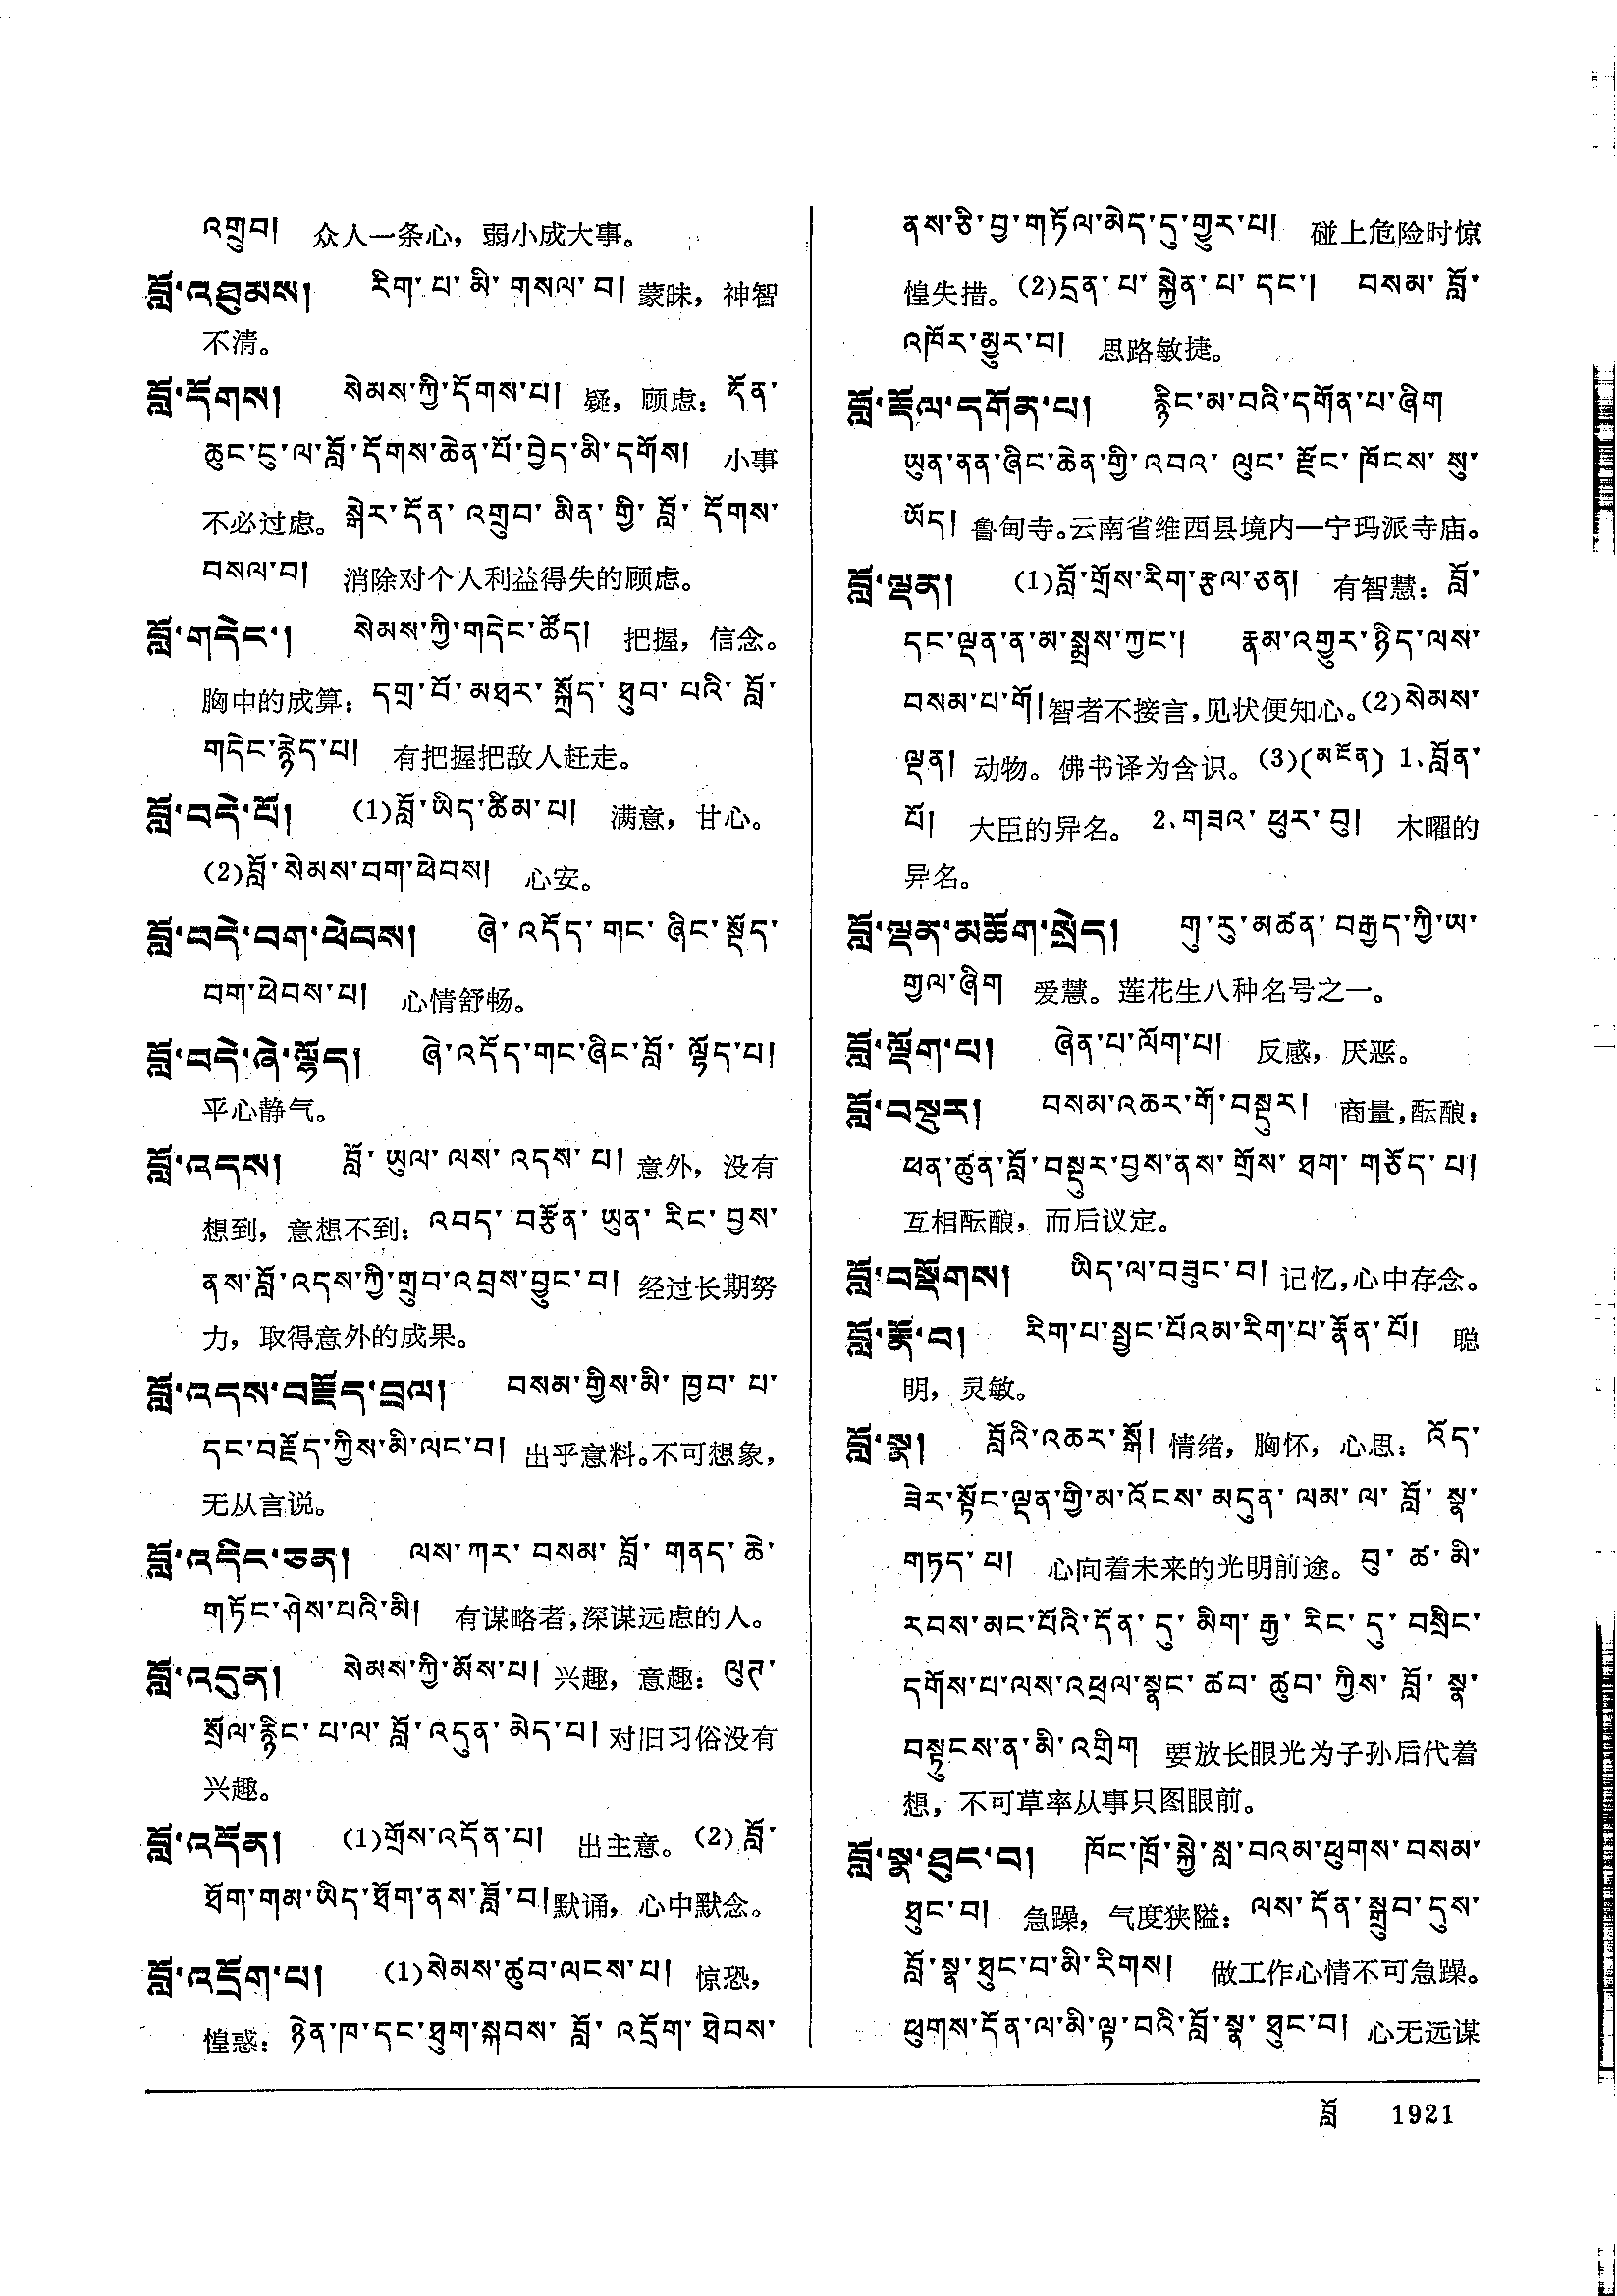 འགྲུབ། 众人一条心，弱小成大事。
བློ་འཐུམས། རིག་པ་མི་གསལ་བ། 蒙昧，神智
不清。
བློ་དོགས། སེམས་ཀྱི་དོགས་པ། 疑，顾虑：དོན་
ཆུང་ངུ་ལ་བློ་དོགས་ཆེན་པོ་བྱེད་མི་དགོས། 小事
不必过虑。སྒེར་དོན་འགྲུབ་མིན་གྱི་བློ་དོགས་
བསལ་བ། 消除对个人利益得失的顾虑。
བློ་གདེང་། སེམས་ཀྱི་གདེང་ཚོད། 把握，信念。
胸中的成算：དགྲ་བོ་མཐར་སྐྲོད་ཐུབ་པའི་བློ་
གདེང་རྙེད་པ། 有把握把敌人赶走。
བློ་བདེ་པོ། (1)བློ་ཡིད་ཚིམ་པ། 满意，甘心。
(2)བློ་སེམས་བག་ཕེབས། 心安。
བློ་བདེ་བག་ཕེབས། ཞེ་འདོད་གང་ཞིང་སྡོད་
བག་ཕེབས་པ། 心情舒畅。
བློ་བདེ་ཞེ་ལྷོད། ཞེ་འདོད་གང་ཞིང་བློ་ལྷོད་པ།
平心静气。
བློ་འདས། བློ་ཡུལ་ལས་འདས་པ། 意外，没有
想到，意想不到：འབད་བརྩོན་ཡུན་རིང་བྱས་
ནས་བློ་འདས་ཀྱི་གྲུབ་འབྲས་བྱུང་བ། 经过长期努
力，取得意外的成果。
བློ་འདས་བརྗོད་བྲལ། བསམ་གྱིས་མི་ཁྱབ་པ་
དང་བརྗོད་ཀྱིས་མི་ལང་བ། 出乎意料。不可想象，
无从言说。
བློ་འདིང་ཅན། ལས་ཀར་བསམ་བློ་གནད་ཆེ་
གཏོང་ཤེས་པའི་མི། 有谋略者，深谋远虑的人。
བློ་འདུན། སེམས་ཀྱི་མོས་པ། 兴趣，意趣：ལུཊ་
སྲོལ་རྙིང་པ་ལ་བློ་འདུན་མེད་པ། 对旧习俗没有
兴趣。
བློ་འདོན། (1)གྲོས་འདོན་པ། 出主意。(2)བློ་
ཐོག་གམ་ཡིད་ཐོག་ནས་ཟློ་བ། 默诵，心中默念。
བློ་འདྲོག་པ། (1)སེམས་ཚུབ་ལངས་པ། 惊恐，
惶惑：ཉེན་ཁ་དང་ཐུག་སྐབས་བློ་འདྲོག་ཐེབས་
ནས་ཅི་བྱ་གཏོལ་མེད་དུ་གྱུར་པ། 碰上危险时惊
惶失措。(2)དྲན་པ་སྐྱེན་པ་དང་། བསམ་བློ་
འཁོར་མྱུར་བ། 思路敏捷。
བློ་ཇོལ་དགོན་པ། རྙིང་མ་བའི་དགོན་པ་ཞིག
ཡུན་ནན་ཞིང་ཆེན་གྱི་འབའ་ལུང་རྫོང་ཁོངས་སུ་
ཡོད། 鲁甸寺。云南省维西县境内一宁玛派寺庙。
བློ་ལྡན། (1)བློ་གྲོས་རིག་རྩལ་ཅན། 有智慧：བློ་
དང་ལྡན་ན་མ་སྨྲས་ཀྱང་། རྣམ་འགྱུར་ཉིད་ལས་
བསམ་པ་གོ། 智者不接言，见状便知心。(2)སེམས་
ལྡན། 动物。佛书译为含识。(3)(མངོན) 1、བློན་
པོ། 大臣的异名。2、གཟའ་ཕུར་བུ། 木曜的
异名。
བློ་ལྡན་མཆོག་སྲེད། གུ་རུ་མཚན་བརྒྱད་ཀྱི་ཨ་
གྱལ་ཞིག 爱慧。莲花生八种名号之一。
བློ་ལྡོག་པ། ཞེན་པ་ལོག་པ། 反感，厌恶。
བློ་བསྡུར། བསམ་འཆར་གོ་བསྡུར། 商量，酝酿：
ཕན་ཚུན་བློ་བསྡུར་བྱས་ནས་གྲོས་ཐག་གཅོད་པ།
互相酝酿，而后议定。
བློ་བསྡོགས། ཡིད་ལ་བཟུང་བ། 记忆，心中存念。
བློ་རྣོ་བ། རིག་པ་སྤྱང་པོའམ་རིག་པ་རྣོན་པོ། 聪
明，灵敏。
བློ་སྣ། བློའི་འཆར་སྒོ། 情绪，胸怀，心思：འོད་
ཟེར་སྟོང་ལྡན་གྱི་མ་འོངས་མདུན་ལམ་ལ་བློ་སྣ་
གཏད་པ། 心向着未来的光明前途。བུ་ཚ་མི་
རབས་མང་པོའི་དོན་དུ་མིག་རྒྱ་རིང་དུ་བསྲིང་
དགོས་པ་ལས་འཕྲལ་སྣང་ཚབ་ཚུབ་ཀྱིས་བློ་སྣ་
བསྟུངས་ན་མི་འགྲིག 要放长眼光为子孙后代着
想，不可草率从事只图眼前。
བློ་སྣ་ཐུང་བ། ཁོང་ཁྲོ་སྐྱེ་སླ་བའམ་ཕུགས་བསམ་
ཐུང་བ། 急躁，气度狭隘：ལས་དོན་སྒྲུབ་དུས་
བློ་སྣ་ཐུང་བ་མི་རིགས། 做工作心情不可急躁。
ཕུགས་དོན་ལ་མི་ལྟ་བའི་བློ་སྣ་ཐུང་བ། 心无远谋
བློ 1921